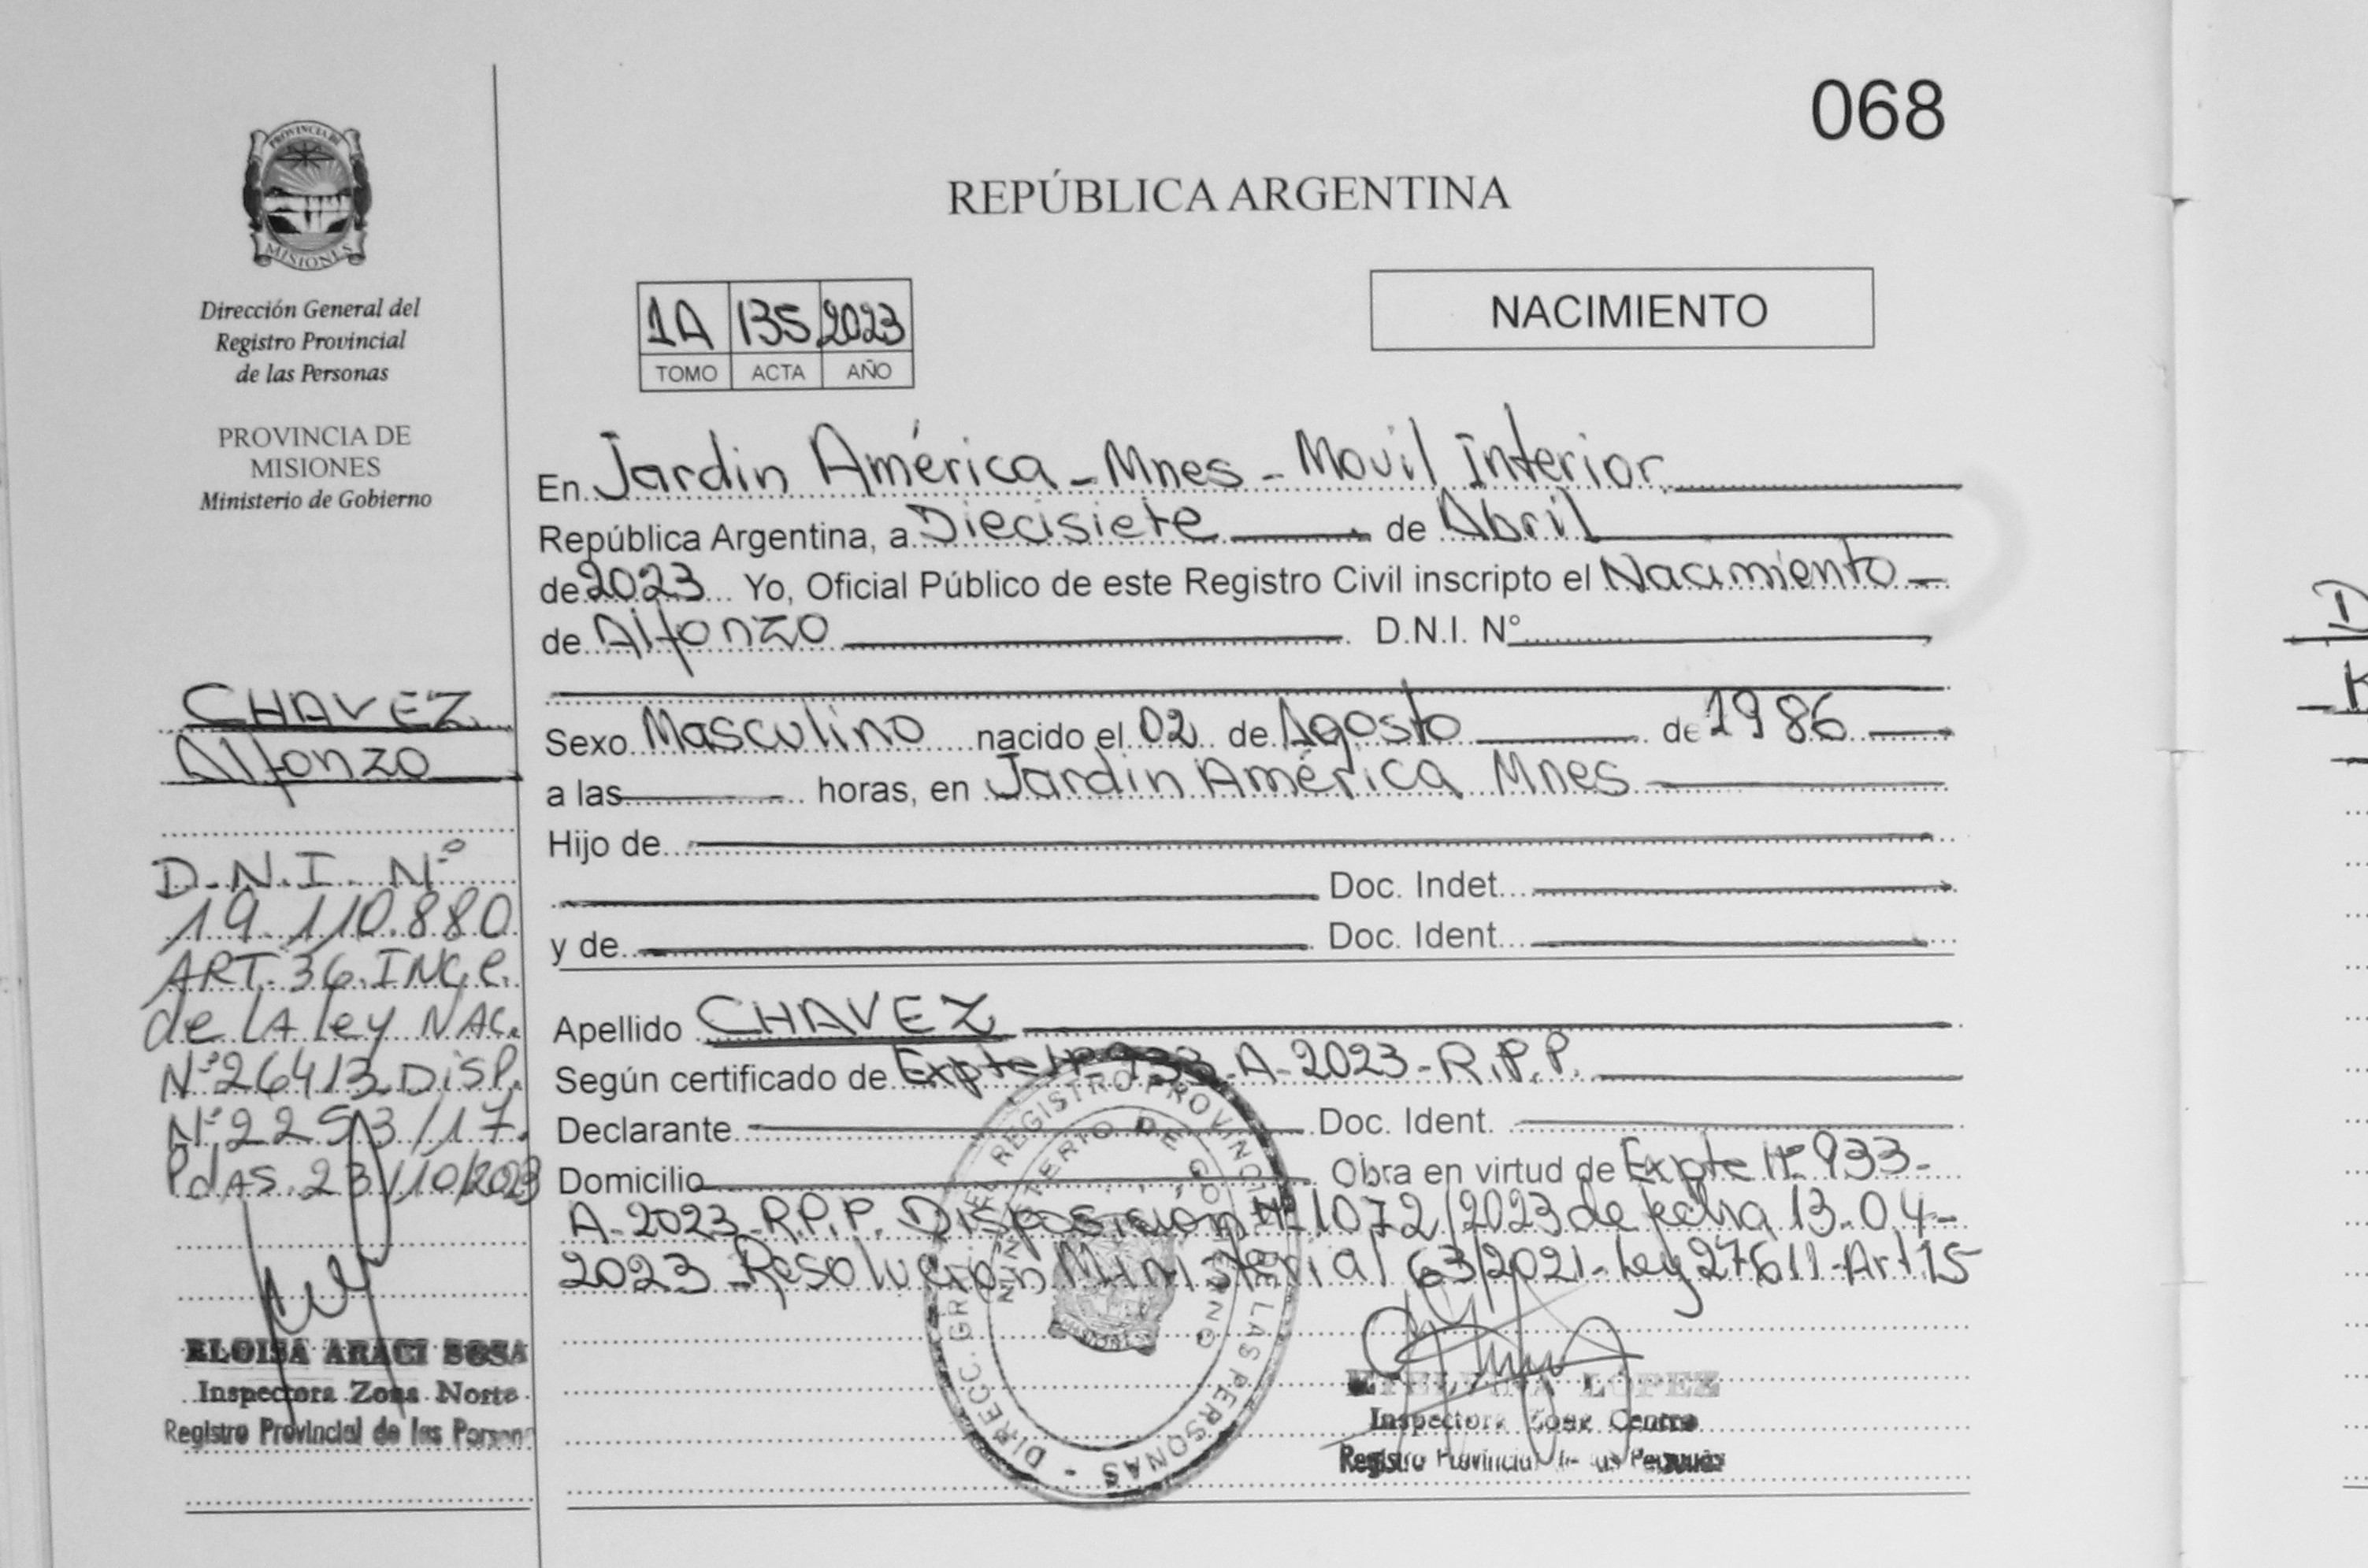 068
PROVINCIA DE
MISIONES
Dirección General del
Registro Provincial
de las Personas
PROVINCIA DE
MISIONES
Ministerio de Gobierno
REPÚBLICA ARGENTINA
1A 135 2023
TOMO ACTA AÑO
NACIMIENTO
En Jardin América - Mnes - Movil Interior
República Argentina, a Diecisiete de Abril
de 2023 Yo, Oficial Público de este Registro Civil inscripto el Nacimiento
de Alfonzo D.N.I. N°
Sexo Masculino nacido el 02 de Agosto de 1986
a las horas, en Jardin América Mnes
Hijo de
Doc. Indet.
y de Doc. Ident.
Apellido CHAVEZ
Según certificado de Expte Nº 933-A-2023-R.P.P.
Declarante Doc. Ident.
Domicilio Obra en virtud de Expte Nº 933-
A-2023-R.P.P. Disposición Nº 1072/2023 de fecha 13-04-
2023 Resolución Ministerial 63/2021-Ley 27611-Art 15
CHAVEZ
Alfonzo
D.N.I. Nº
19.110.880
ART. 36. INC. C.
de LA ley NAC.
Nº 26413 DISP.
Nº 2253/17.
PdAS. 23/10/2023
ELOISA ARACI SOSA
Inspectora Zona Norte
Registro Provincial de las Person
DIRECC. GRAL. DEL REGISTRO PROVINCIAL DE LAS PERSONAS -
MINISTERIO DE GOBIERNO
MISIONES
LOPEZ
Inspectora Zona Centro
Registro Provincial de las Personas
D
K